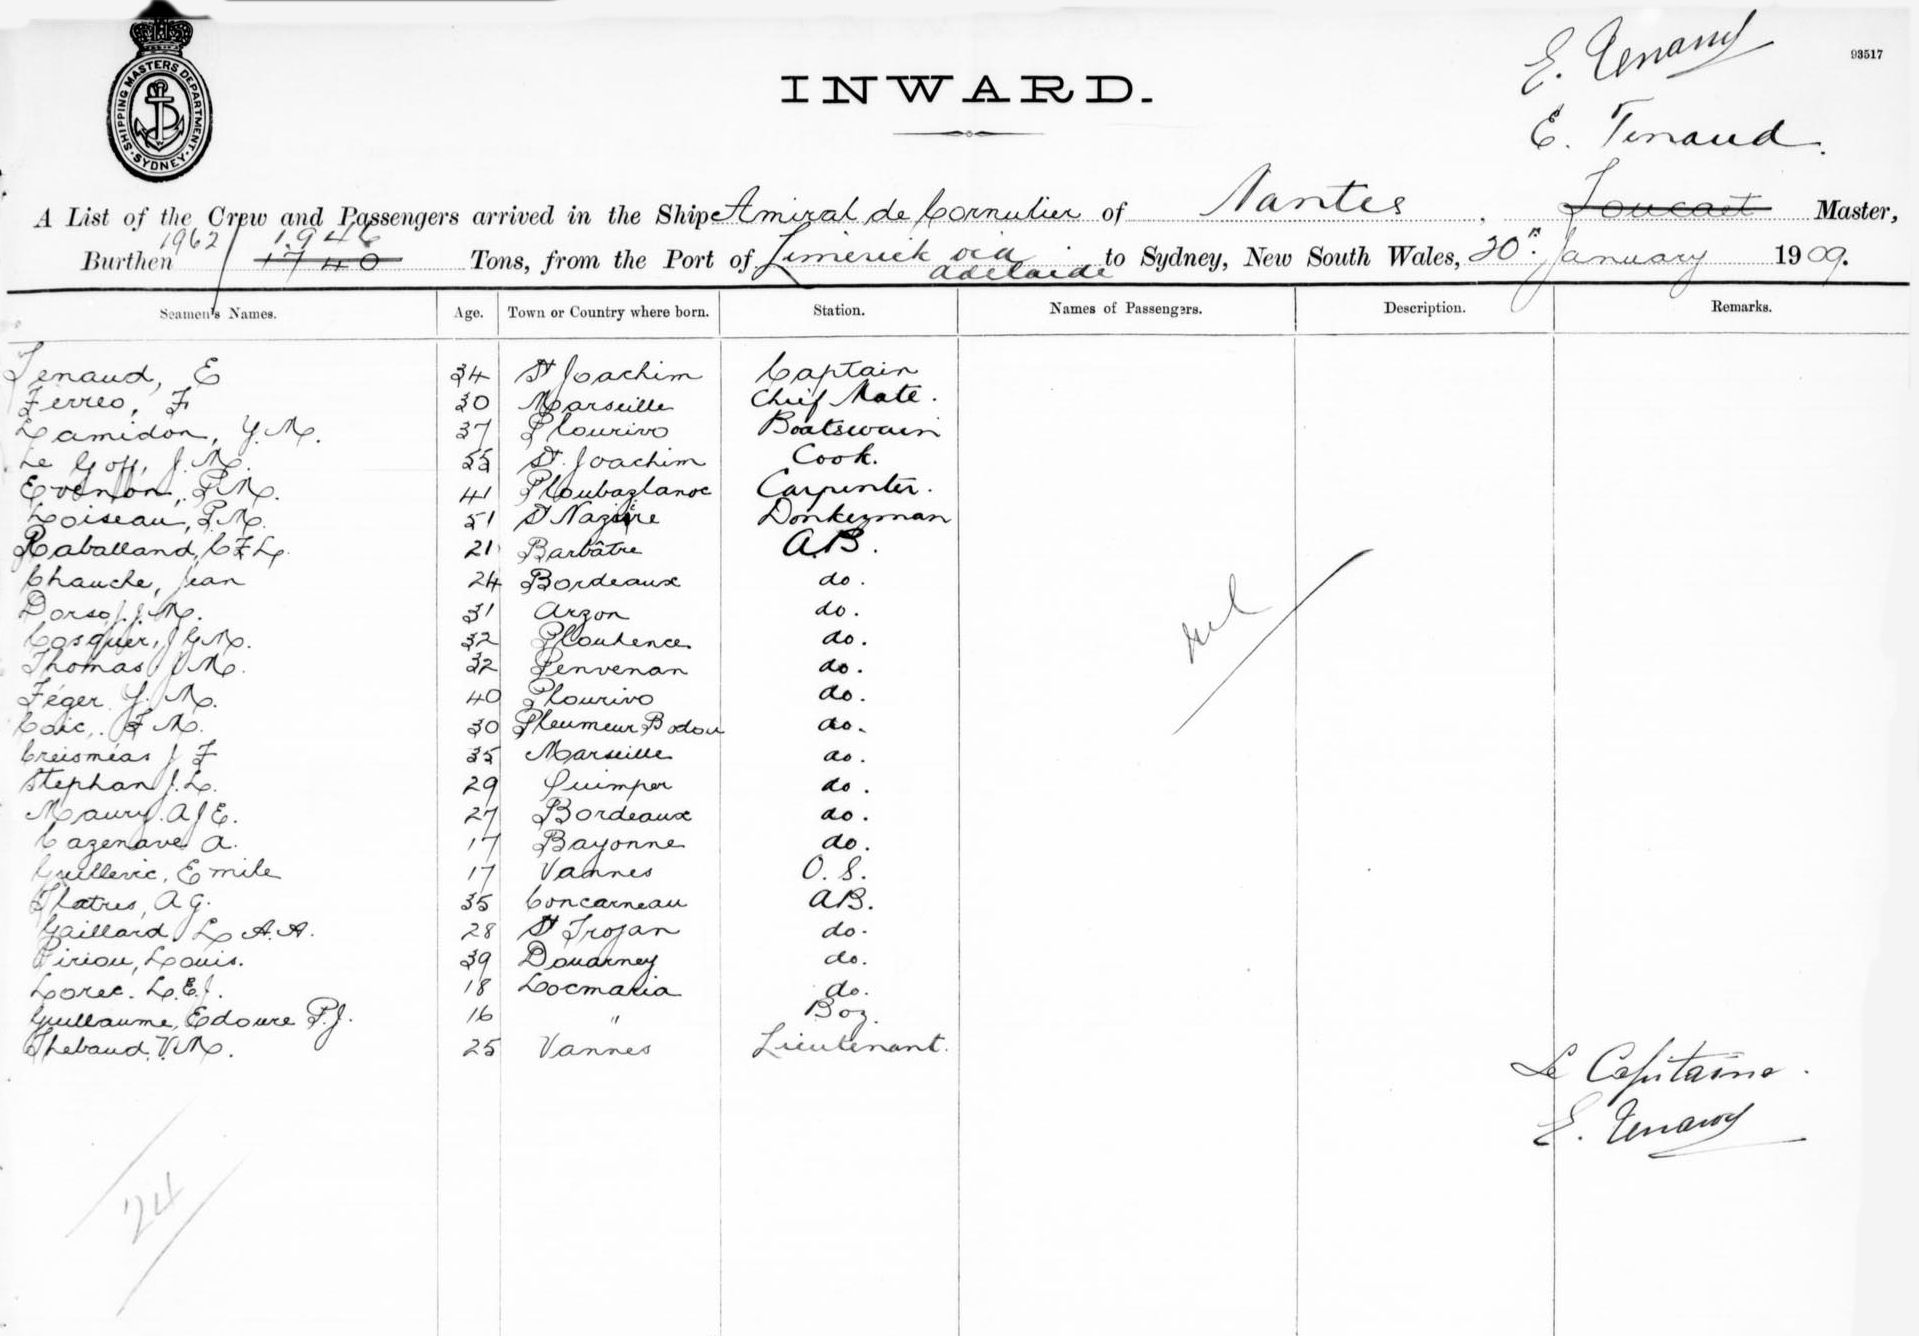 SHIPPING MASTERS DEPARTMENT. SYDNEY.
93517
INWARD.
E. Tenaud
E. Tenaud.
A List of the Crew and Passengers arrived in the Ship Amiral de Cornulier of Nantes, Master,
Burthen 1962/1946 1740 Tons, from the Port of Limerick via Adelaide to Sydney, New South Wales, 20th January 1909.
Seamen's Names. Age. Town or Country where born. Station. Names of Passengers. Description. Remarks.
Tenaud, E 34 St Joachim Captain
Ferreo, F 30 Marseille Chief Mate.
Lamidon, Y. M. 37 Plourivo Boatswain
Le Goff, J. M. 55 St. Joachim Cook.
Evenon, P.M. 41 Ploubazlanec Carpenter.
Loiseau, P.M. 51 St Nazaire Donkeyman
Raballand, C F L. 21 Barbâtre A.B.
Chauche, Jean 24 Bordeaux do.
Dorso, J. M. 31 Arzon do.
Cosquer, J G M. 32 do.
Thomas J M. 32 Penvenan do.
Féger Y. M. 40 Plourivo do.
Coic, F M. 30 Pleumeur Bodou do.
Creisméas J F 35 Marseille do.
Stephan J. L. 29 Quimper do.
Maury. A J E. 27 Bordeaux do.
Cazenave A. 17 Bayonne do.
Guillevic, Emile 17 Vannes O. S.
Flatres, A G. 35 Concarneau AB.
Gaillard L A. A. 28 St Trojan do.
Piriou, Louis. 39 Douarney do.
Lorec. L. E. J. 18 Locmaria do.
Guillaume, Edoure P. J. 16 " Boy.
Thebaud. V. M. 25 Vannes Lieutenant.
nil
Le Capitaine.
E. Tenaud
24